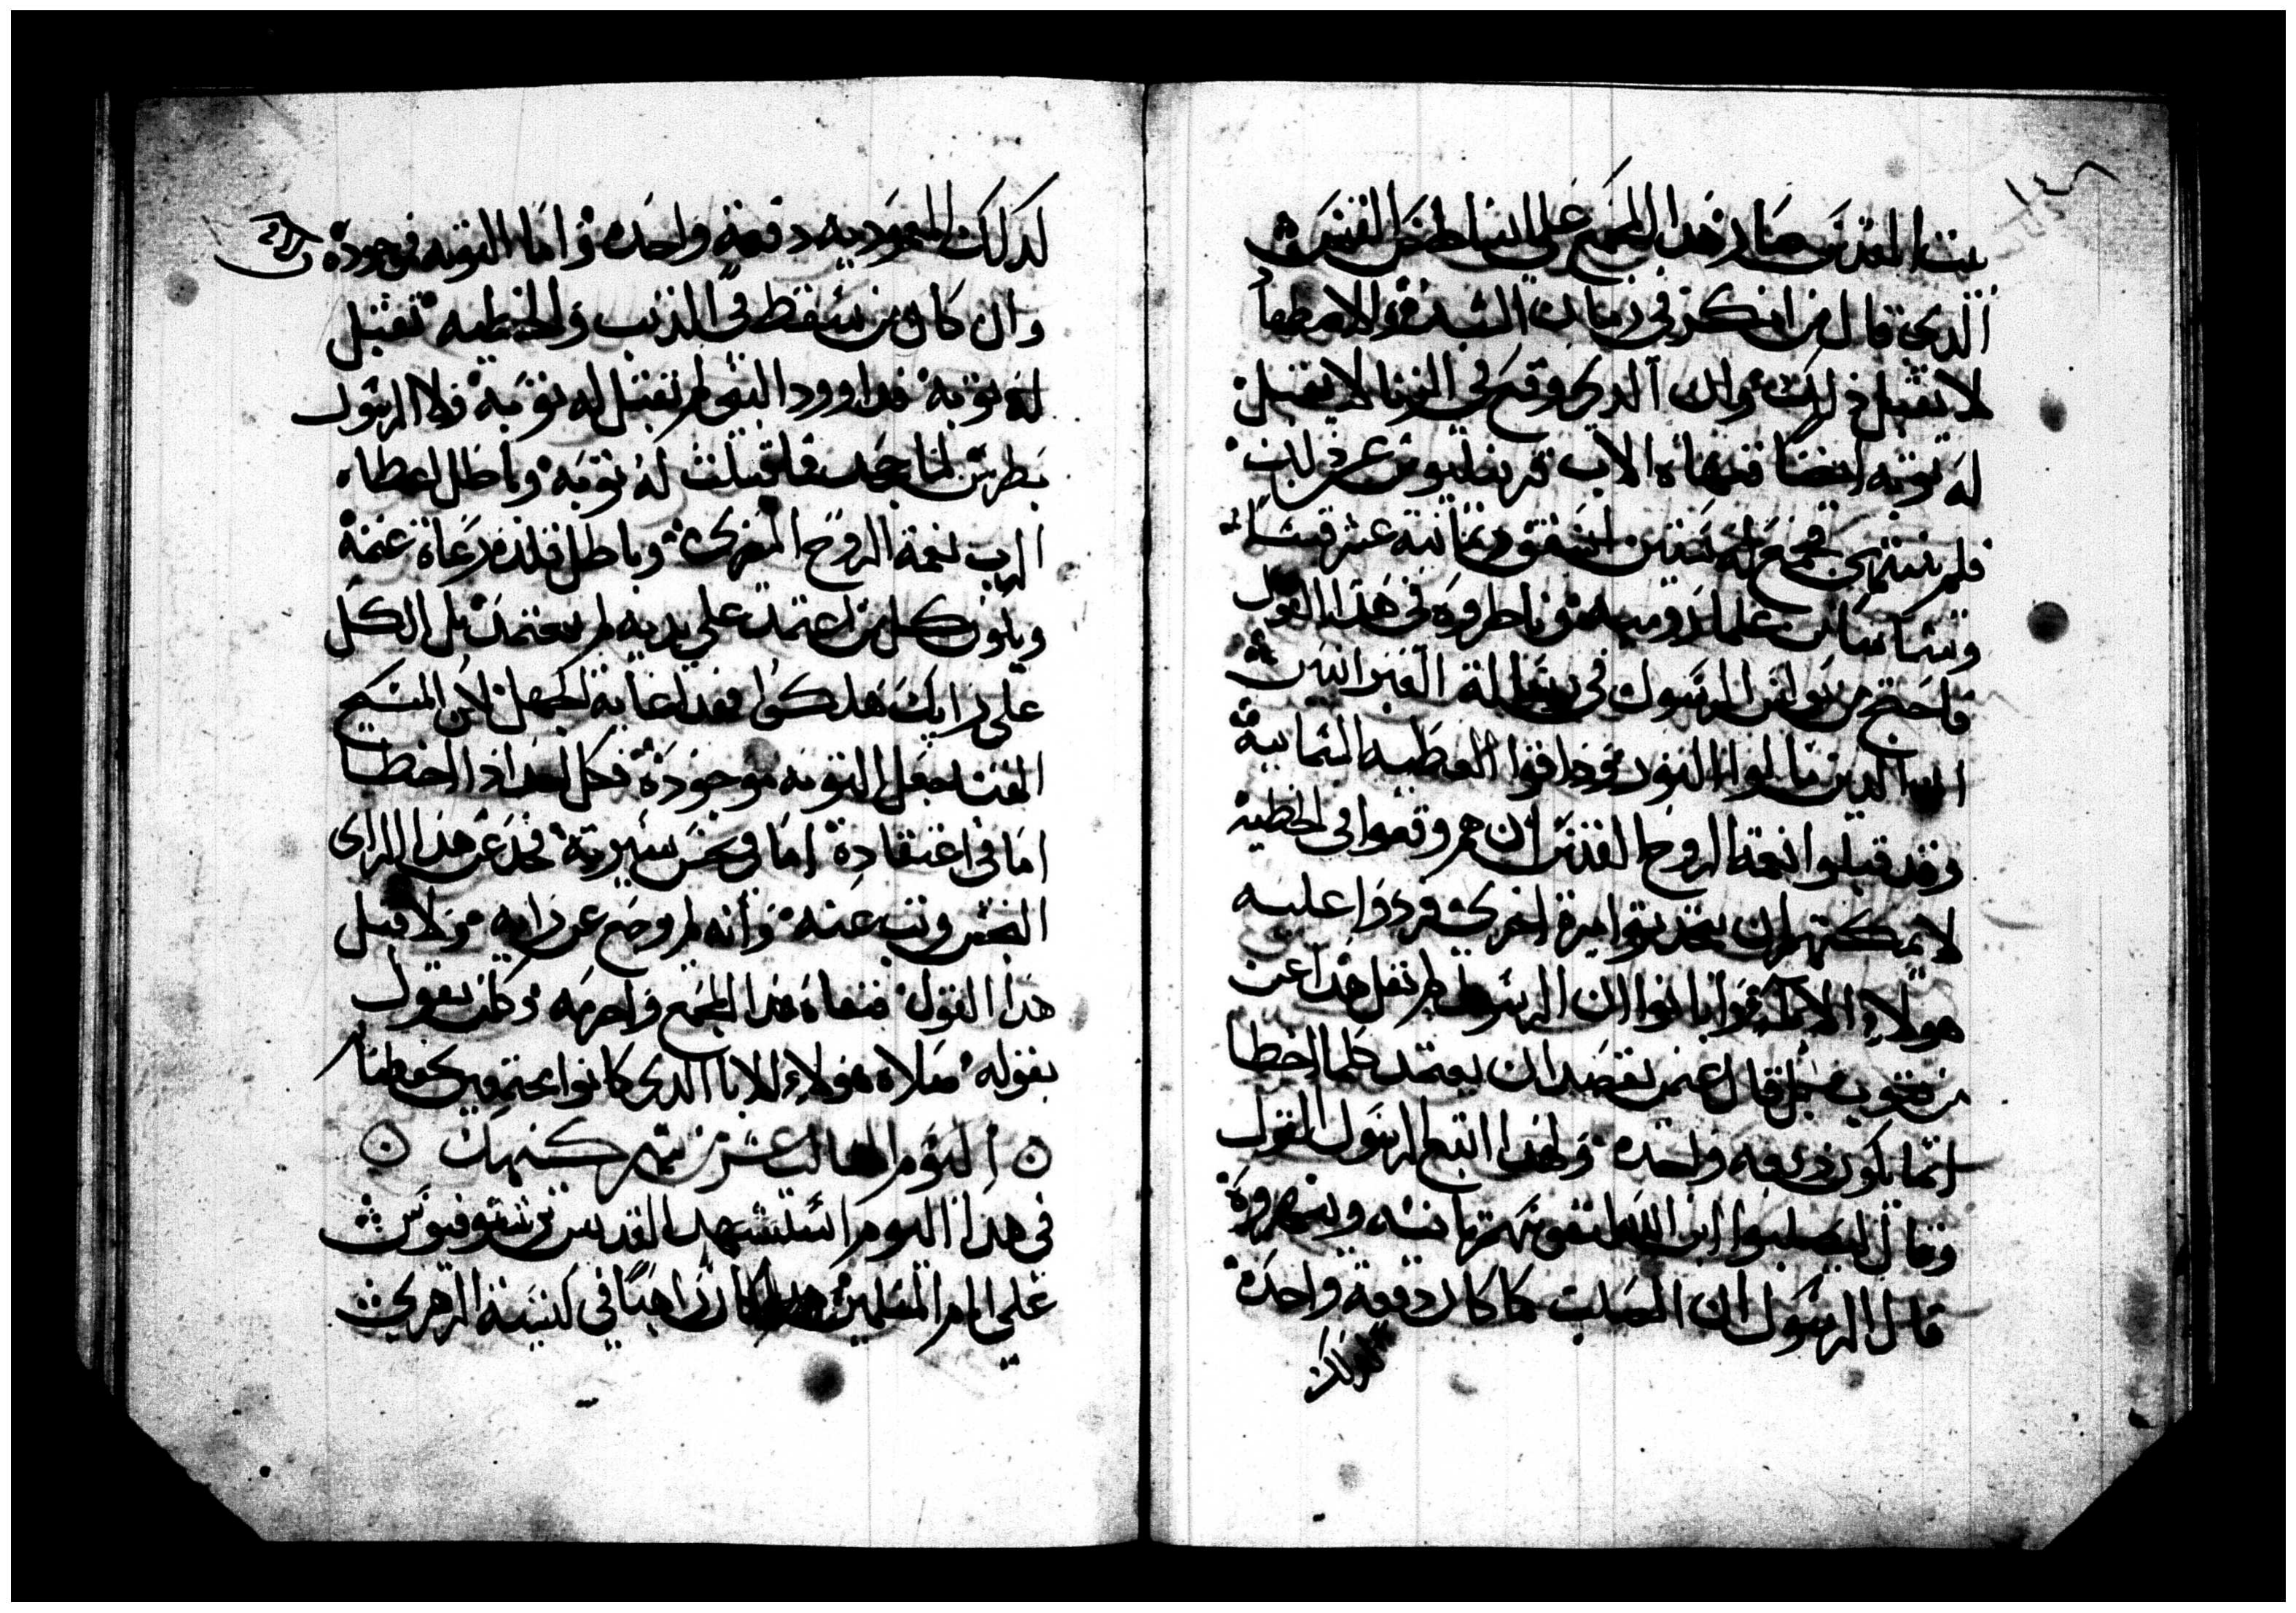 ١٤٨
بيت المقدس صار هذا المجمع على انباطس القس
الدي قال من انكر في زمان الشده والاضطهاد
لا تقبل ذلك وان الدي وقع في الزنا لا يقبل
له توبه ايضا فنهاه الاب قرنيليوس عن ذلك
فلم ينتهي فجمع له ستين اسقف وثمانية عشر قسا
وشمامسة علما رومية وناظروه في هذا القول
فاحتج من بولس الرسول في رسالة العبرانيين
ان الدين نالوا النور وذاقوا العطيه السمايية
وقد قبلوا نعمة الروح القدس ان هم وقعوا في الخطية
لا يمكنهم ان يتجددوا مرة اخرى فردوا عليه
هولاء الابا وابانوا ان الرسول لم يقل هذا عن
من يتوب بل قال عنمن يقصد ان يعتمد كلما اخطا
انما يكون دفعه واحده ولهذا اتبع الرسول القول
وقال ليصلبوا ابن الله لنفوسهم ثانية ويشهروه
قال الرسول ان الصلب كما كان دفعة واحدة
كدلك
كدلك المعموديه دفعة واحده واما التوبه فموجودة
وان كان من سقط في الذنب والخطيه تقبل
له توبة فداوود النبي لم تقبل له توبة ولا الرسول
بطرس لما جحد فلا قبلت له توبة وباطل اعطاه
الرب نعمة الروح المعزي وباطل قلده رعاة غنمه
ويكون كل من اعتمد على يديه لم يعتمد بل الكل
على رايك هلكوا فهدا غاية الجهل لان المسيح
الهنا جعل التوبه موجودة فكل احد اذا اخطا
اما في اعتقادة اما في نجس سيرته فحد عن هذا الراي
الخسر وتب عنه وانه لم يرجع عن رايه ولا قبل
هدا القول فنفاه هدا المجمع واحرمه وكلمن يقول
بقوله صلاة هولاء الابا الدي كانوا مجتمعين تحفظنا
۞ اليوم الثالث عشر من شهر كيهك ۞
في هذا اليوم استشهد القديس برشنوفيوس
على ايام المسلمين هدا كان راهبا في كنيسة الزهري